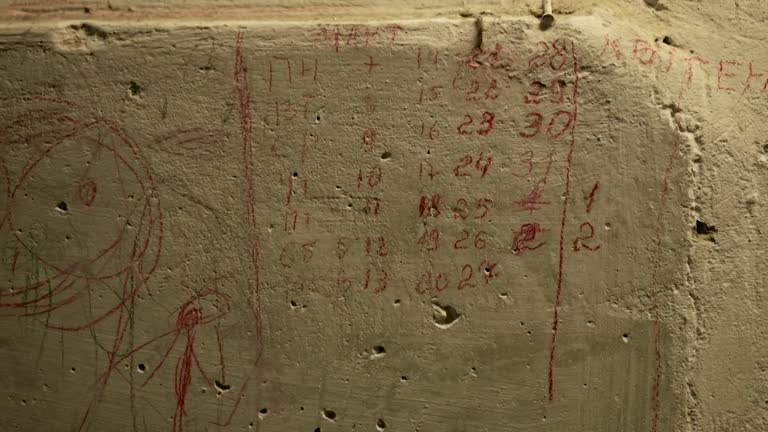 МАРТ КВІТЕН
ПН 7 14 21 28
ВТ 8 15 22 29
СР 9 16 23 30
10 17 24 31
ПТ 11 18 25 1 1
СБ 5 12 19 26 2 2
6 13 20 27